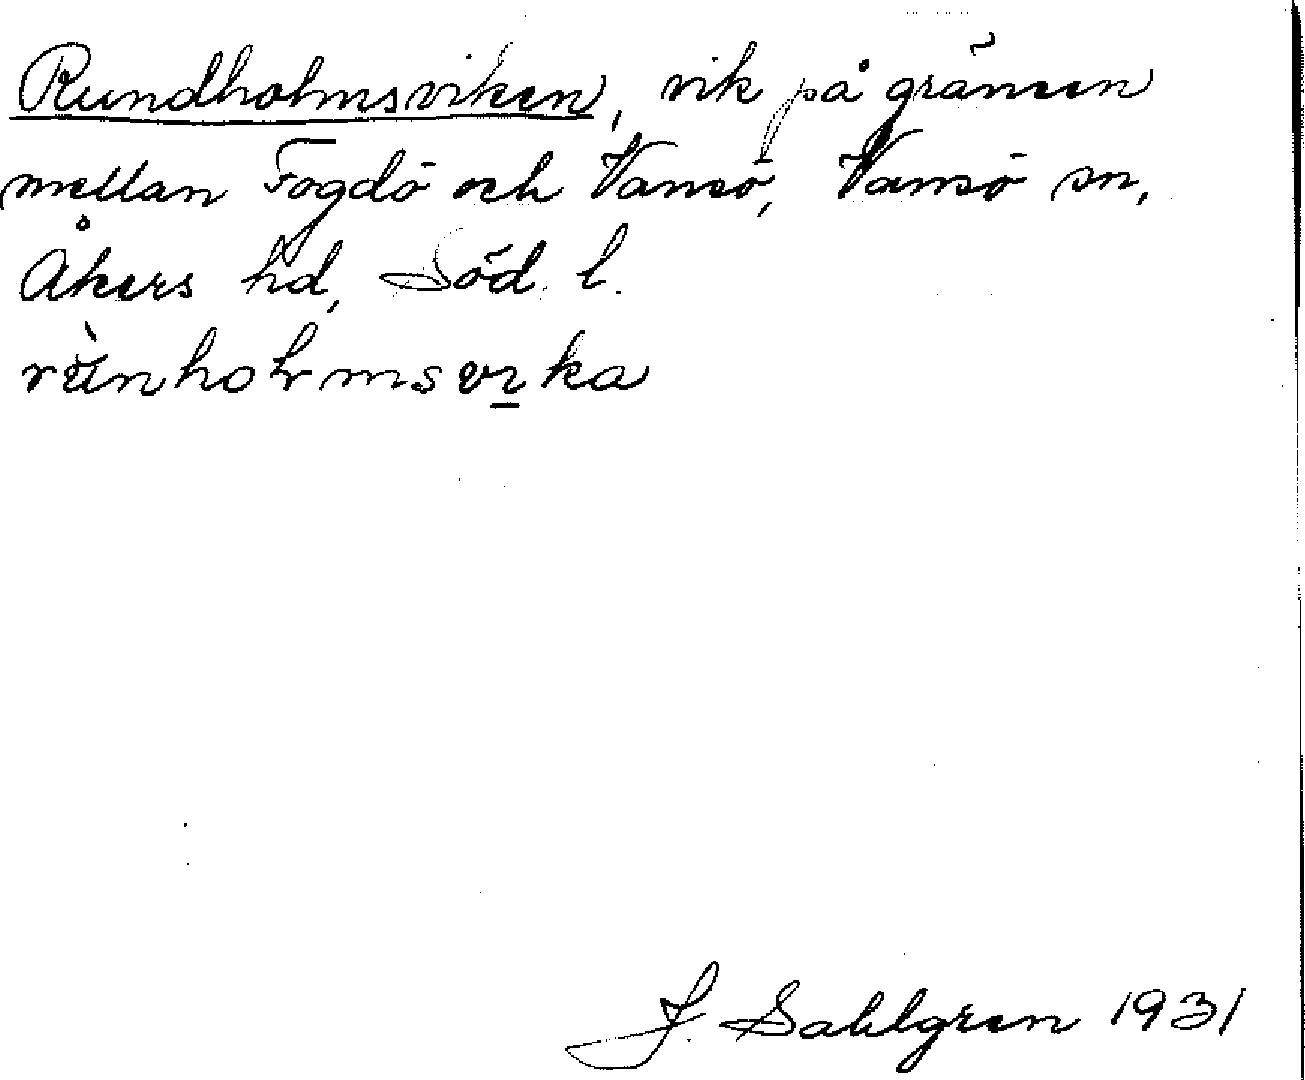 Rundholmsviken, vik på gränsen
mellan Fogdö och Vansö, Vansö sn,
Åkers hd, Söd. l.
rùnholmsvi̱ka
J. Sahlgren 1931